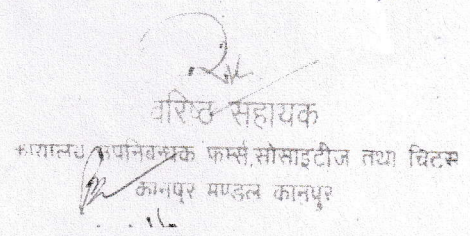 वरिष्ठ सहायक
कार्यालय उपनिबन्धक फर्म्स,सोसाइटीज तथा चिटस
कानपुर मण्डल कानपुर